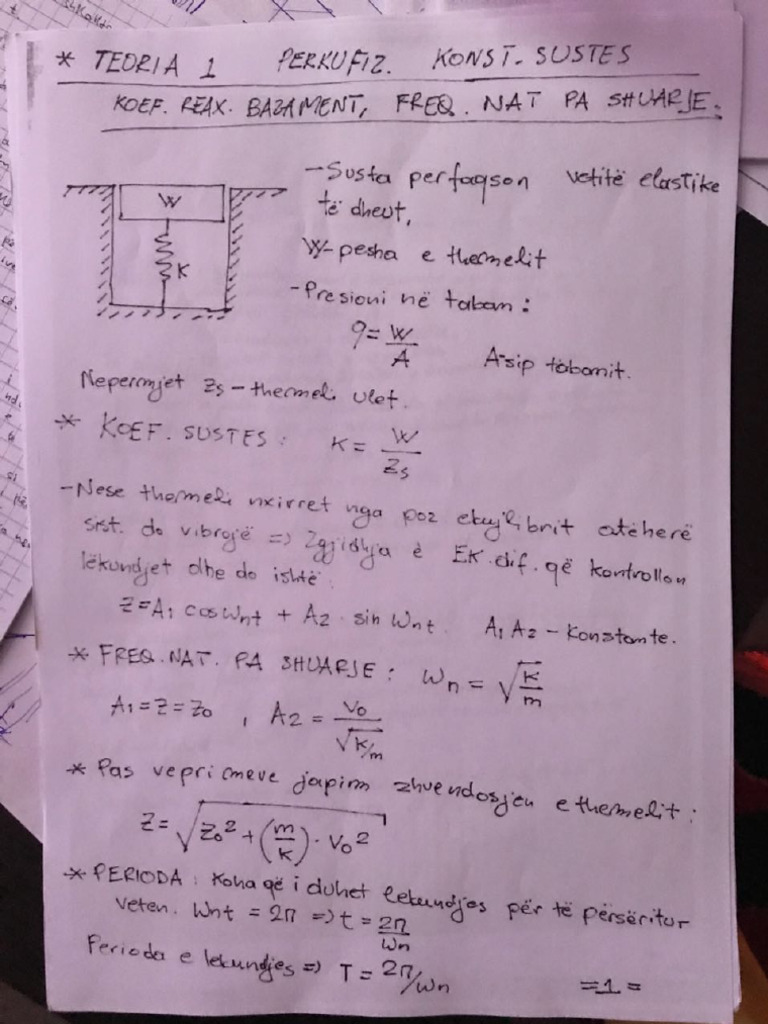 * TEORIA 1 PERKUFIZ. KONST. SUSTES
KOEF. REAX. BAZAMENT, FREQ. NAT PA SHUARJE:
- Susta perfaqson vetitë elastike
të dheut,
W
K
W-pesha e themelit
- Presioni në taban:
q = W/A A-sip tabanit.
Nepermjet Zs - themeli ulet.
* KOEF. SUSTES: K = W/Zs
- Nese themeli nxirret nga poz ekujlibrit atëherë
sist. do vibrojë => Zgjidhja e EK. dif. që kontrollon
lëkundjet dhe do ishtë:
Z = A1 cos Wnt + A2 · sin Wnt. A1 A2 - Konstante.
* FREQ. NAT. PA SHUARJE: Wn = √(K/m)
A1 = Z = Z0 , A2 = V0/√(K/m)
* Pas veprimeve japim zhvendosjen e themelit:
Z = √(Z0² + (m/K) · V0²)
* PERIODA: Koha që i duhet lekundjes për të përsëritur
veten. Wnt = 2π => t = 2π/Wn
Perioda e lekundjes => T = 2π/Wn
=1=